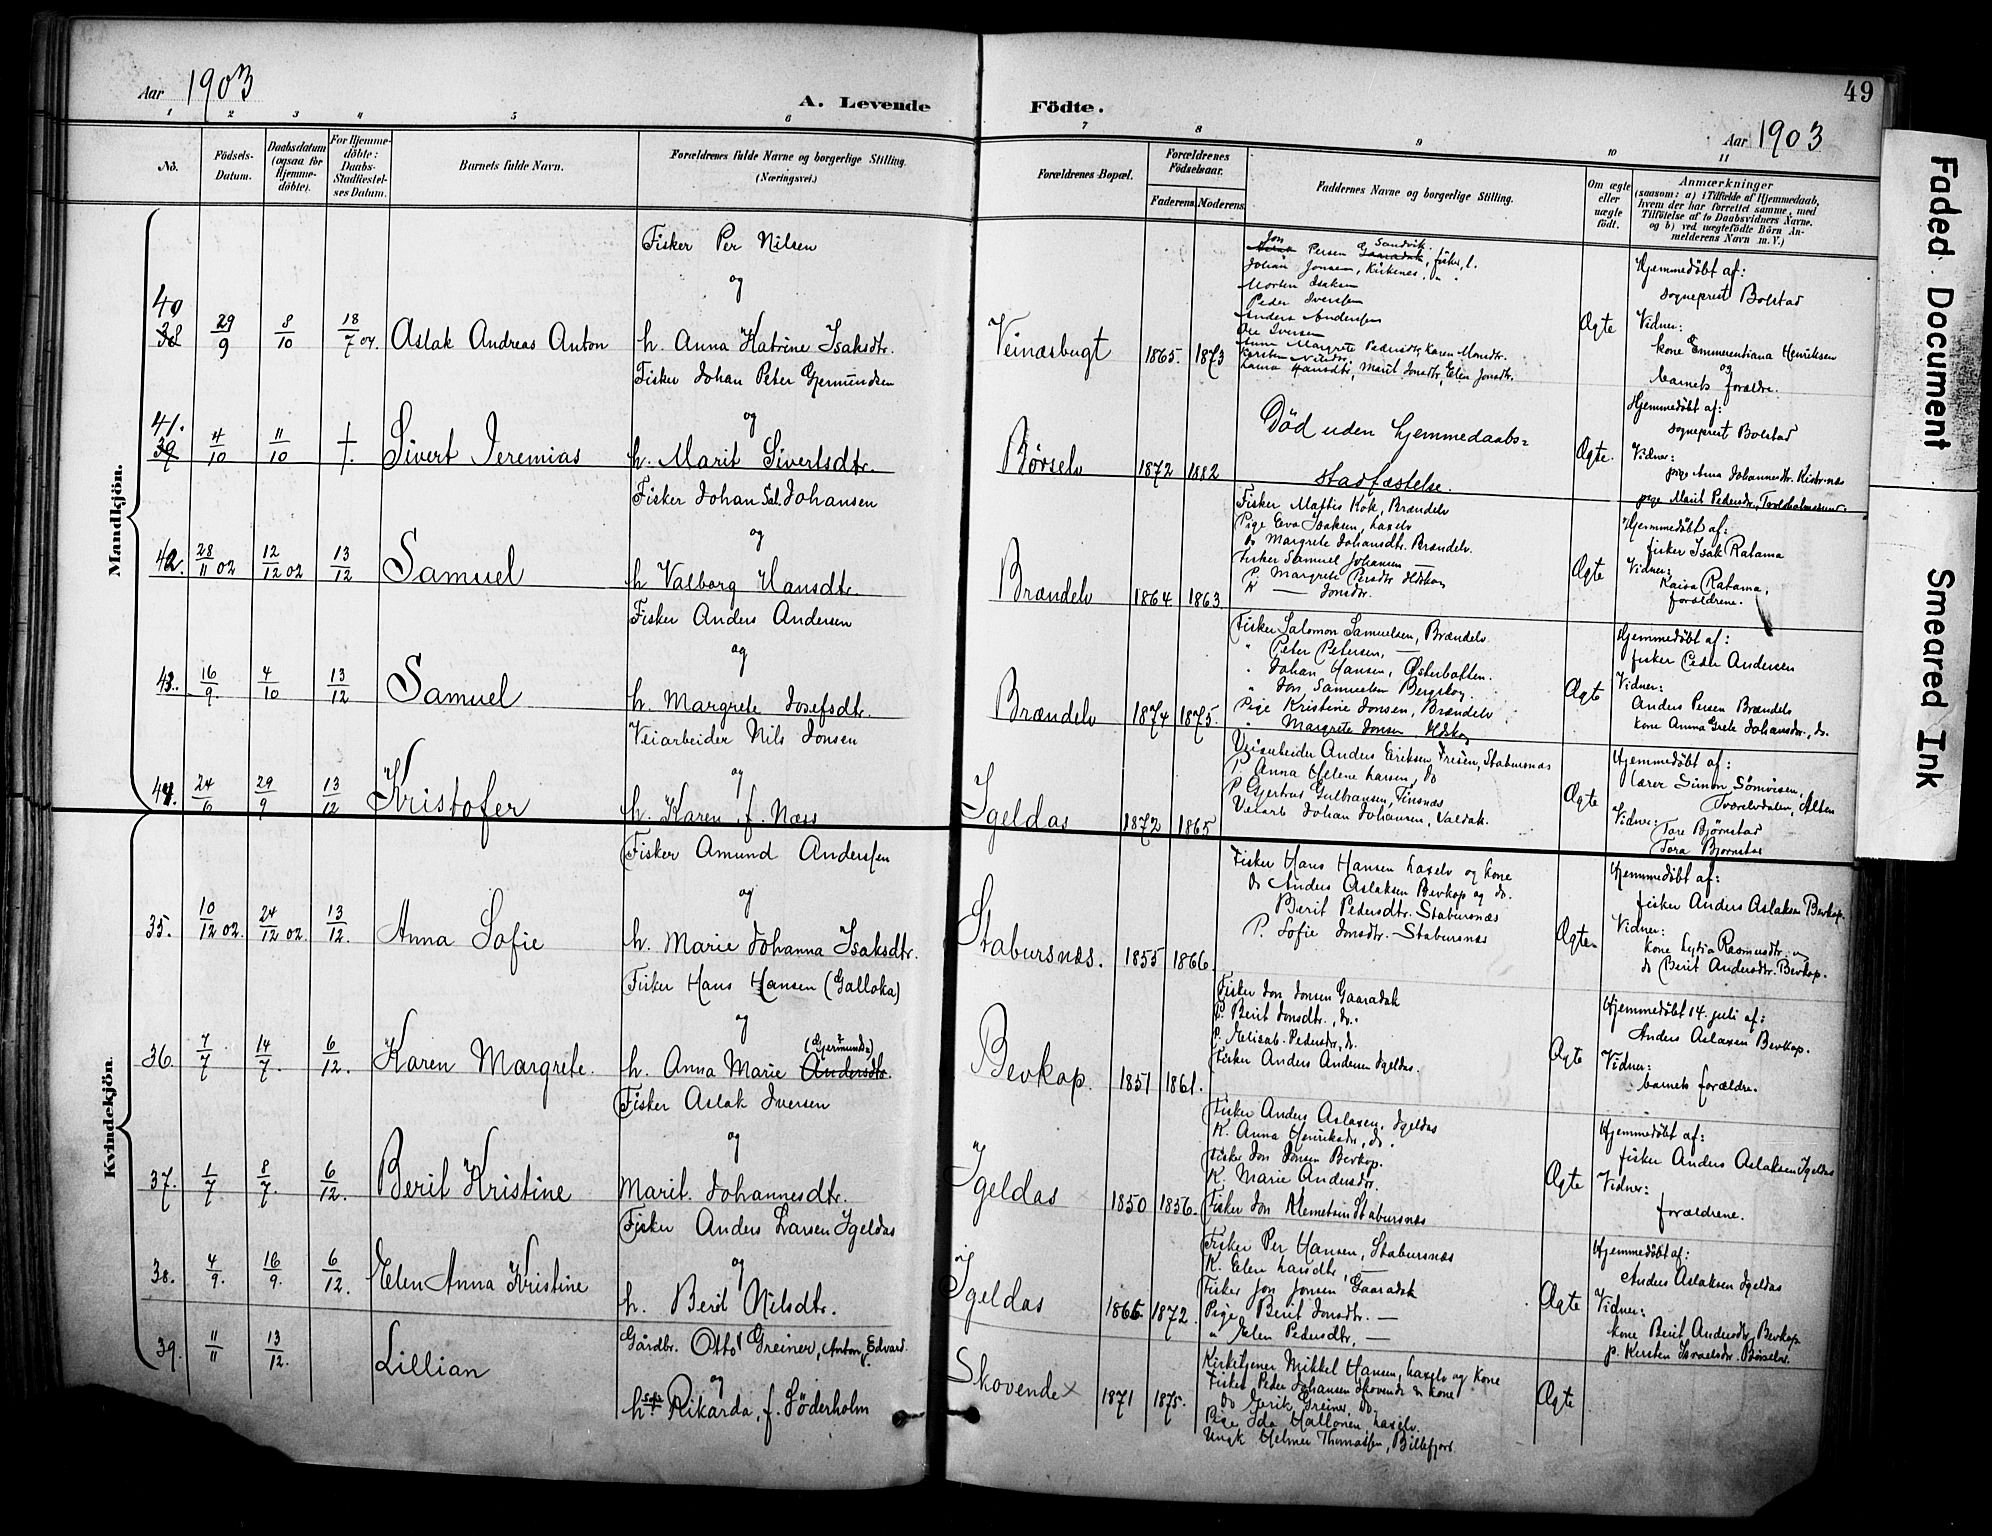 49
Aar 1903
A. Levende Födte.
Aar 1903
1 2 3 4 5 6 7 8 9 10 11
No.
Födsels-Datum.
Daabsdatum (ogsaa for Hjemmedöbte).
For Hjemmedöbte: Daabs-Stadfæstelses Datum.
Barnets fulde Navn.
Forældrenes fulde Navne og borgerlige Stilling.
(Næringsvei.)
Forældrenes Bopæl.
Forældrenes Födselsaar.
Faderens. Moderens.
Faddernes Navne og borgerlige Stilling.
Om ægte eller uægte födt.
Anmærkninger
(saasom: a) i Tilfælde af Hjemmedaab, hvem der har forrettet samme, med Tilföielse af to Daabsvidners Navne. og b) ved uægtefödte Börn Anmelderens Navn m. V.)
Mandkjön.
40
38
29/9
8/10
18/7 04
Aslak Andreas Anton
Fisker Per Nilsen
og
h. Anna Katrine Isaksdtr.
Veinæsbugt
1865. 1873
Jon Persen Sandvik, fisker
Johan Jonsen, Kistenes
Morten Isaksen
Peder Iversen
Anders Andersen
Ole Iversen
Anne Margrete Pedersdtr, Karen Monsdtr.
Laura Hansdtr, Marit Jonsdtr, Elen Jonsdtr.
Ægte
Hjemmedöbt af:
sogneprest Bolstad
Vidner:
kone Emmerentiana Henriksen
og
barnets forældre.
41.
39
4/10
11/10
†
Sivert Jeremias
Fisker Johan Peter Gjermundsen
og
h. Marit Sivertsdtr.
Börselv
1872 1882
Död uden hjemmedaabs=
stadfæstelse.
Ægte.
Hjemmedöbt af:
sogneprest Bolstad
Vidner:
pige Anna Johannesdtr. Kistr.næs
pige Marit Pedersdtr,
42.
28/11 02
12/12 02
13/12
Samuel
Fisker Johan Sal. Johansen
og
h Valborg Hansdtr.
Brændelv
1864 1863
Fisker Mattis Kok, Brændelv
Pige Eva Isaksen, Laxelv
do Margrete Johansdtr. Brændelv.
Fisker Samuel Johansen —
P. Margrete Persdtr
K — Jonsdtr.
Ægte
Hjemmedöbt af:
fisker Isak Ratama
Vidner:
Kaisa Ratama,
forældrene.
43.
16/9
4/10
13/12
Samuel
Fisker Anders Andersen
og
h. Margrete Josefsdtr.
Brændelv
1874 1875.
Fisker Salomon Samuelsen, Brændelv
" Peter Petersen, —
" Johan Hansen, Østerbotten.
" Jon Samuelsen Bergskog.
Pige Kristine Jonsen, Brændelv
" Margrete Jonsen
Ægte
Hjemmedöbt af:
fisker Peder Andersen
Vidner:
Anders Persen Brændelv
kone Anna Grete Johansdtr, do.
44.
24/6
29/9
13/12
Kristofer
Veiarbeider Nils Jonsen
og
h. Karen f. Næss
Igeldas
1872 1865
Veiarbeider Anders Eriksen Frisén, Stabursnæs
P. Anna Helene Larsen, do
Veiarb Johan Johansen, Valdak.
Ægte
Hjemmedöbt af:
lærer Simon
Tværelvdalen, Alten
Vidner:
Tore Bjørnstad
Tora Bjørnstad
Kvindekjön.
35.
10/12 02.
24/12 02
13/12.
Anna Sofie
Fisker Amund Andersen
og
h. Marie Johanna Isaksdtr.
Stabursnæs.
1855 1866.
Fisker Hans Hansen Laxelv og kone
do Anders Aslaksen Bevkop og do.
Berit Pedersdtr. Stabursnæs
P. Sofie Jonsdtr. Stabursnæs
Ægte
Hjemmedöbt af:
fisker Anders Aslaksen Bevkop.
Vidner:
kone Lydia Rasmusdtr.
do Berit Andersdtr. Bevkop.
36.
7/7
14/7.
6/12.
Karen Margrete.
Fisker Hans Hansen (Galloka)
og
(Gjermunds)
h. Anna Marie Andersdtr.
Bevkop.
1851 1861.
Fisker Jon Jonsen Gaaradak
P. Berit Jonsdtr., do.
P. Elisab. Pedersdtr, do.
Fisker Anders Andersen Igeldas.
Ægte
Hjemmedöbt 14. juli af:
Anders Aslaxen Bevkop.
Vidner:
barnets forældre.
37.
1/7
8/7.
6/12.
Berit Kristine
Fisker Aslak Iversen
og
Marit. Johannesdtr.
Igeldas
1850 1856.
Fisker Anders Aslaxen, Igeldas
K. Anna Henriksdtr, do.
Fisker Jon Jonsen Bevkop.
K. Marie Andersdtr.
Fisker Jon Klemetsen Stabursnæs
Ægte
Hjemmedöbt af:
fisker Anders Aslaksen Igeldas
Vidner:
forældrene.
38.
4/9.
16/9.
6/12.
Elen Anna Kristine
Fisker Anders Larsen Igeldas
og
h. Berit Nilsdtr.
Igeldas
1866 1872.
Fisker Per Hansen, Stabursnæs
K. Elen Larsdtr, —
Fisker Jon Jonsen Gaaradak
Pige Berit Jonsdtr. —
" Elen Pedersdtr, —
Ægte
Hjemmedöbt af:
Anders Aslaksen Igeldas
Vidner:
kone Berit Andersdtr Bevkop
p. Kirsten Israelsdtr. Börselv.
39.
11/11
13/12.
Lillian
Gårdbr. Otto Greiner, Anton, Edvard
og
h. Sofie Rikarda, f. Söderholm
Skovende ×
1871 1875.
Kirketjener Mikkel Hansen, Laxelv og kone
Fisker Peder Johansen Skovende & kone
do Henrik Greiner, do
Pige Ida Hallonen Laxelv.
Ungk Helmer Thomassen, Billefjord.
Ægte
Faded Document
Smeared Ink